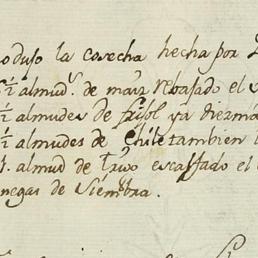 oduso la cosecha hecha por
½ almud.s de maiz rebajado el
½ almudes de frijol ya diezma
½ almudes de Chile tambien
almud de trigo escassado el
negas de siembra.